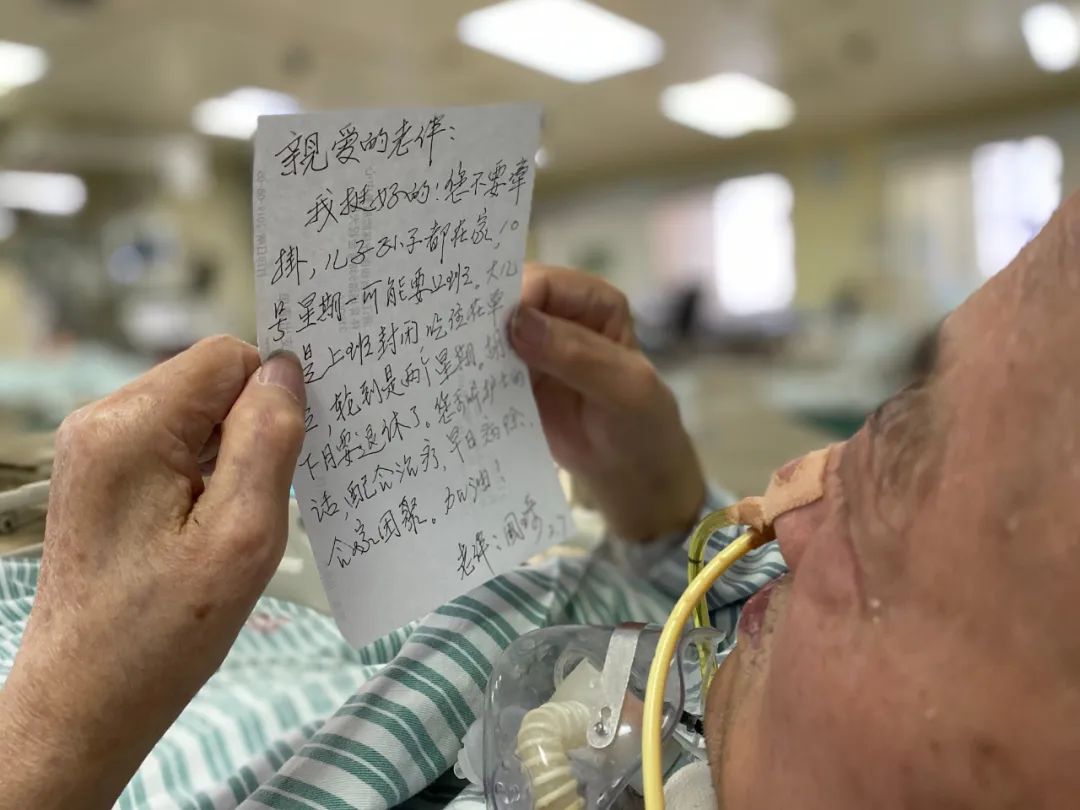 亲爱的老伴：
我挺好的！您不要牵
掛，儿子孙子都在家，10
号星期一可能要上班。大儿
是上班封闭吃住在单
位，轮到是两个星期。
下月要退休了。您听护士的
话，配合治疗，早日病除，
合家团聚。加油！
老伴：周 2.7